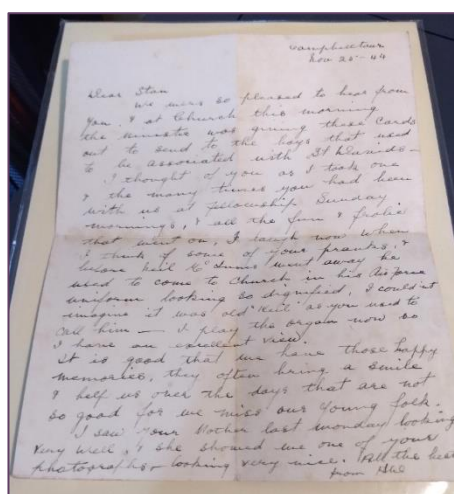 Campbelltown
Nov 25-44
Dear Stan
We were so pleased to hear from
you, & at Church this morning
the minister was giving these cards
out to send to the boys that used
to be associated with St Davids -
I thought of you as I took one
& the many times you had been
with us at fellowship Sunday
mornings, & all the fun & frolic
that went on, I laugh now when
I think of some of your pranks, &
before Keil went away he
used to come to Church in his Air Force
uniform looking so dignified, I couldn't
imagine it was old as you used to
call him — I play the organ now so
I have an excellent view.
It is good that we have those happy
memories, they often bring a smile
& help us over the days that are not
so good for we miss our young folk.
I saw your Mother last Monday looking
very well, & she showed me one of your
photographs - looking very nice. All the best
from